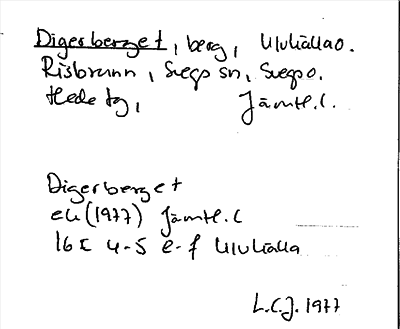 Digerberget, berg, Ulvkälla o.
Risbrunn, Svegs sn, Svegs o.
Hede tg, Jämtl. l.
Digerberget
ek (1977) Jämtl. l
16E 4-5 e-f Ulvkälla
L.C.J. 1977